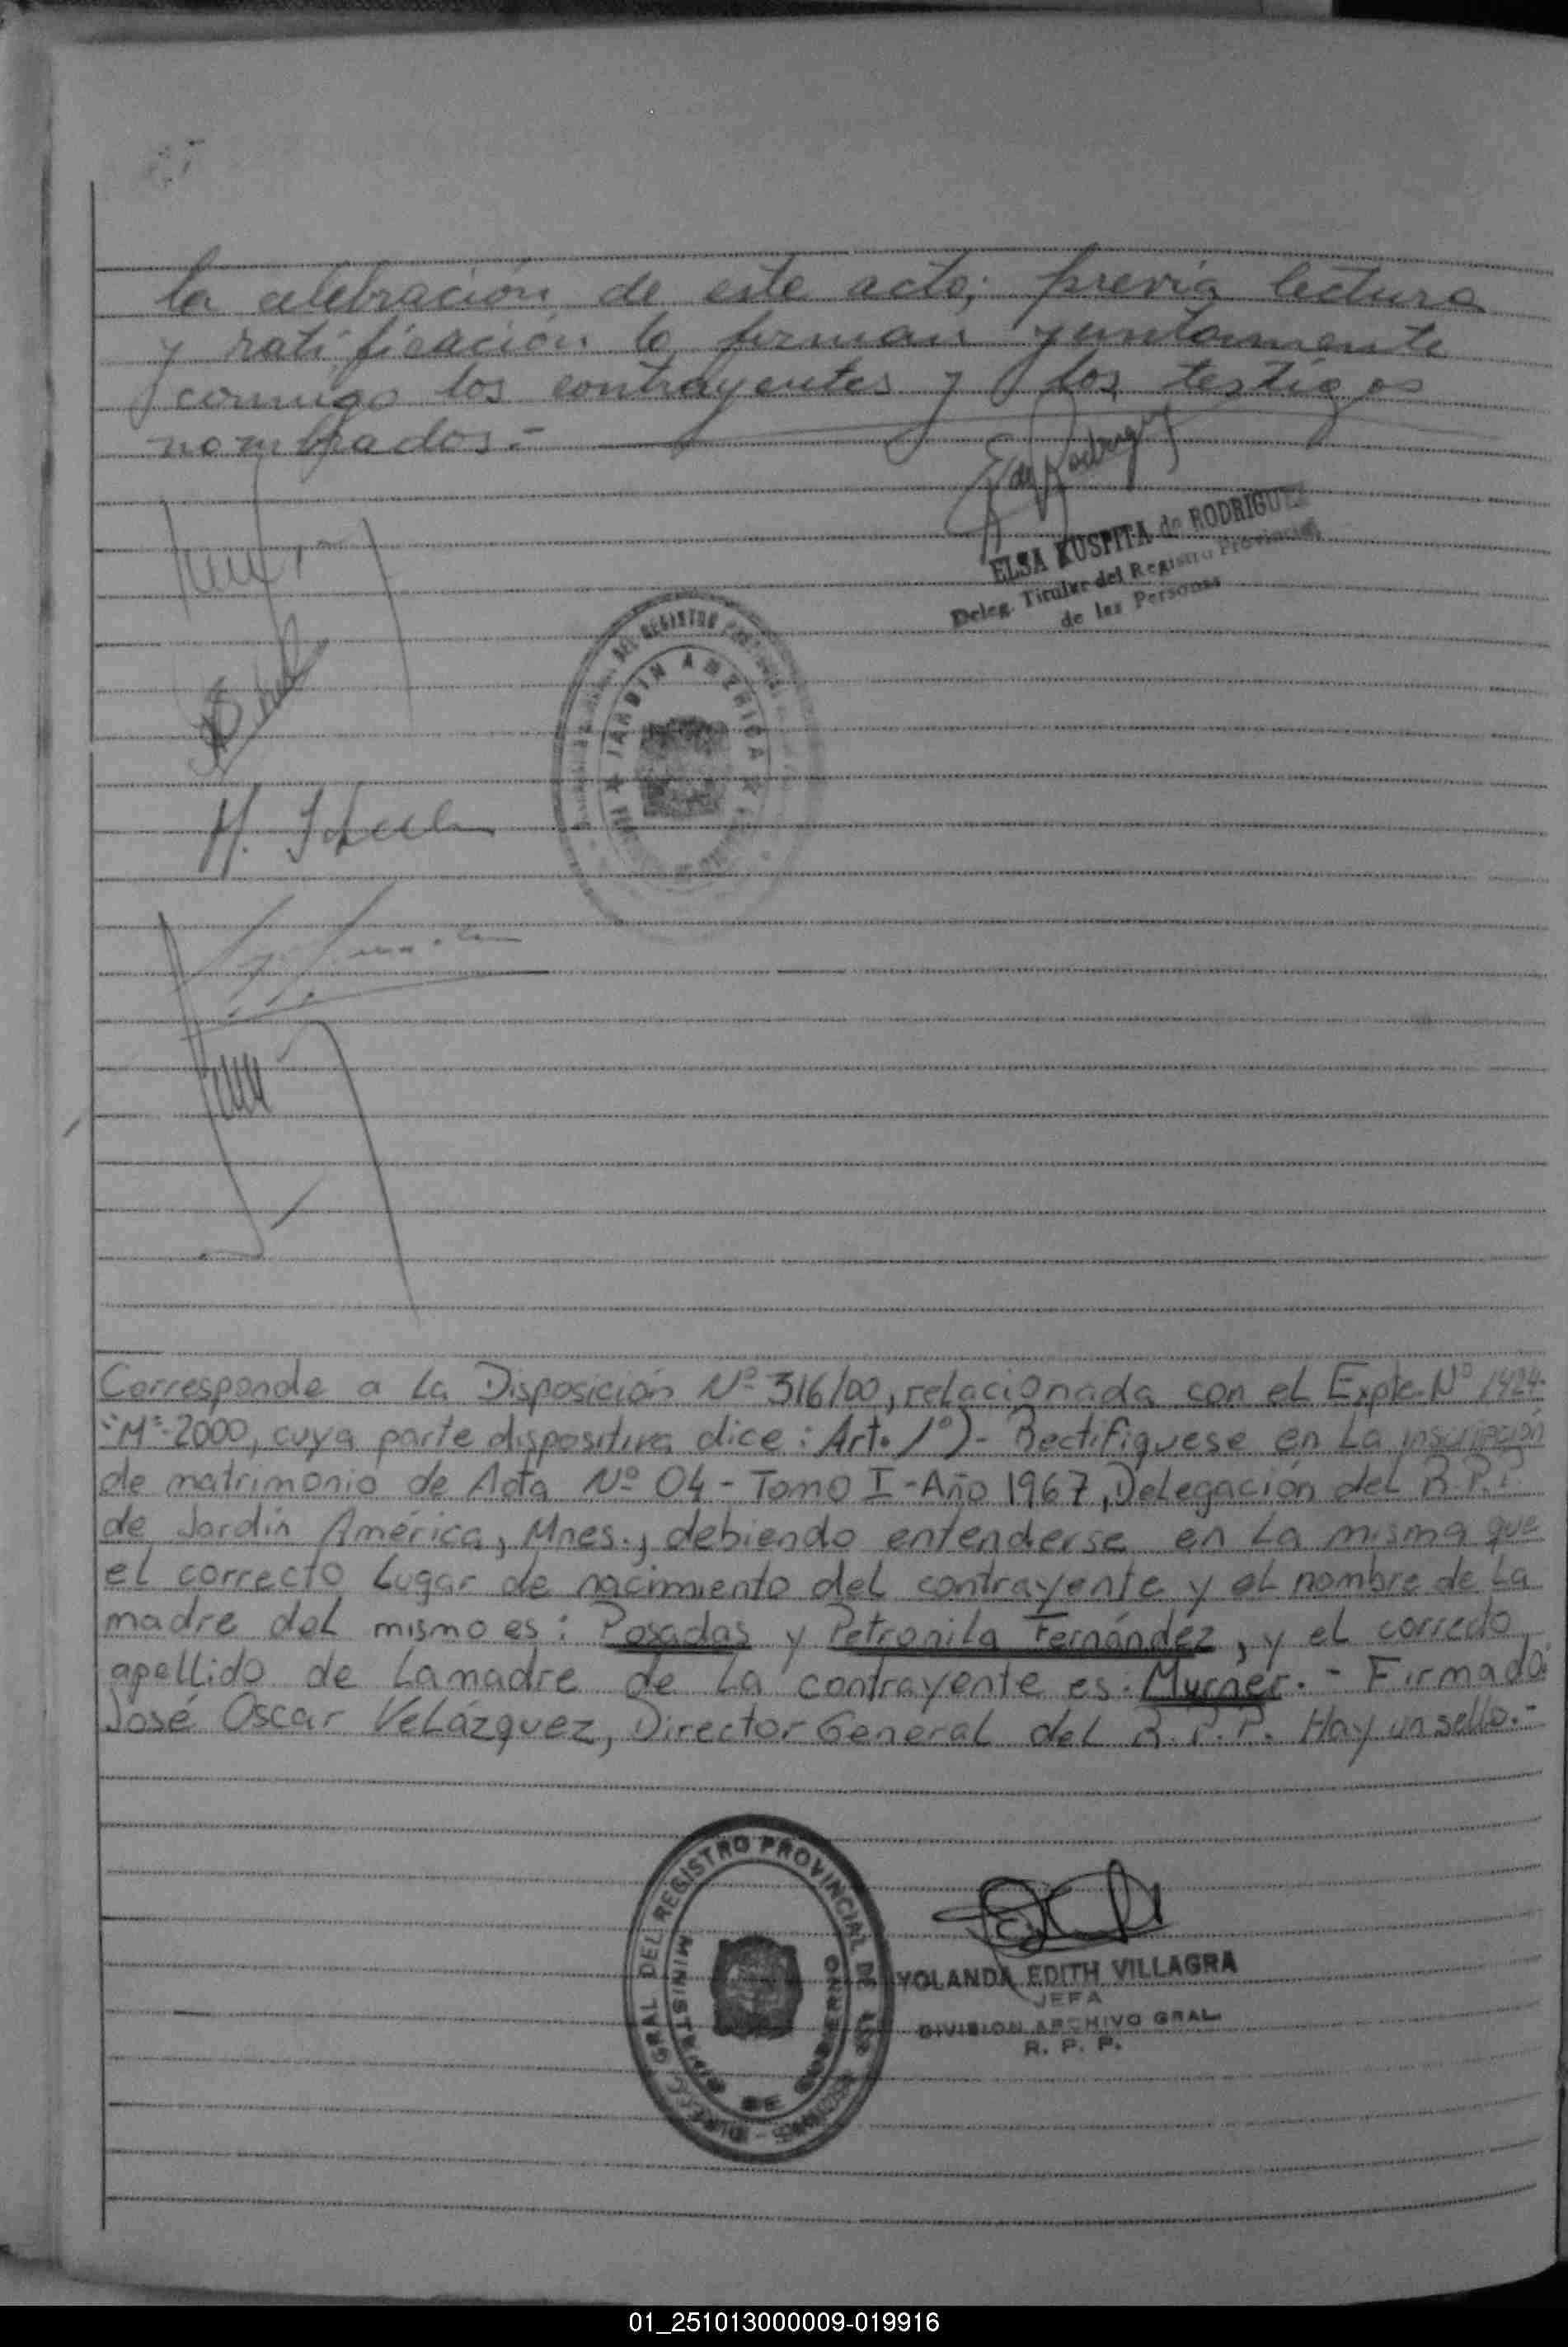 la celebración de este acto; previa lectura
y ratificación la firman juntamente
conmigo los contrayentes y los testigos
nombrados.-
E de Rodriguez
ELSA KUSPITA de RODRIGUEZ
Deleg. Titular del Registro Provincial
de las Personas
DEL REGISTRO
JARDIN AMERICA
Corresponde a La Disposición Nº 316/00, relacionada con el Expte. Nº 1424-
"M"-2000, cuya parte dispositiva dice: Art. 1º)- Rectifiquese en La inscripción
de matrimonio de Acta Nº 04 - Tomo I - Año 1967, Delegación del R.P.P.
de Jardín América, Mnes., debiendo entenderse en La misma que
el correcto Lugar de nacimiento del contrayente y el nombre de La
madre del mismo es: Posadas y Petronila Fernández, y el correcto
apellido de La madre de La contrayente es: Murner. - Firmado:
José Oscar Velázquez, Director General del R.P.P. Hay un sello.-
GRAL DEL REGISTRO PROVINCIAL DE LAS
MINISTERIO DE GOBIERNO
YOLANDA EDITH VILLAGRA
JEFA
DIVISION ARCHIVO GRAL.
R. P. P.
01_251013000009-019916